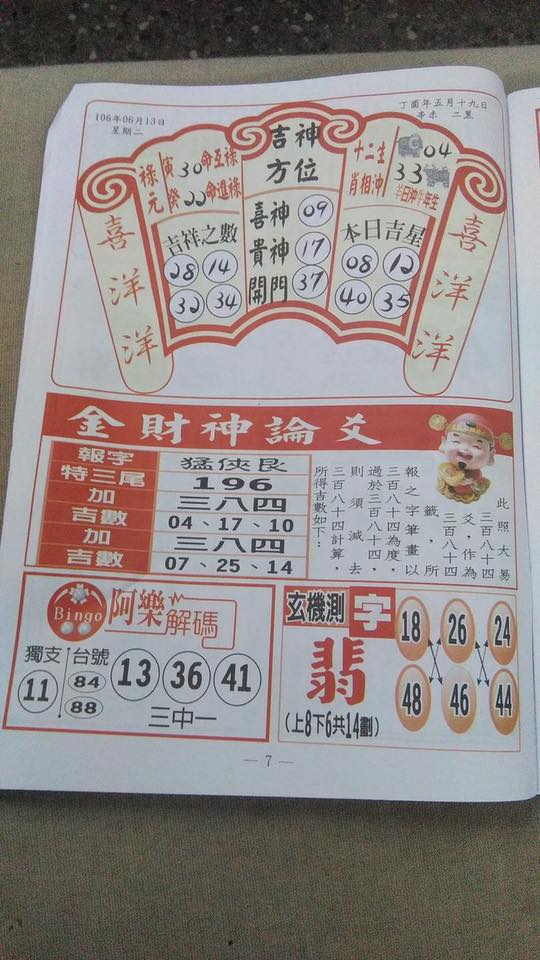 106年06月13日
星期二
丁酉年五月十九日
辛未 二黑
喜洋洋
祿元
寅30命互祿
癸00命進祿
吉祥之數
28 14
32 34
吉神方位
喜神 09
貴神 17
開門 37
十二生肖相沖
04
33
羊日沖牛年生
本日吉星
08 12
40 35
喜洋洋
金財神論爻
報字 猛俠艮
特三尾 196
加 三八四
吉數 04、17、10
加 三八四
吉數 07、25、14
此照大易
三百八十四
爻,作為
三百八十四
籤,所
報之字筆畫以
三百八十四為度,
過於三百八十四
則須減去
三百八十四計算,
所得吉數如下:
Bingo 阿樂解碼
獨支 11
台號 84 88
13 36 41
三中一
玄機測字
翡
(上8下6共14劃)
18 26 24
48 46 44
— 7 —